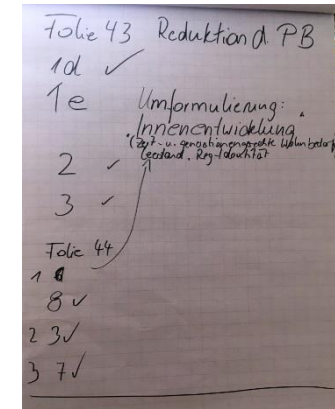 Folie 43 Reduktion d. PB
1d ✓
1e Umformulierung:
"Innenentwicklung"
(Zeit- u. generationengerechte Wohnbedarf
Leerstand, Reg-Identität
2 ✓
3 ✓
Folie 44
1
8 ✓
2 3 ✓
3 7 ✓